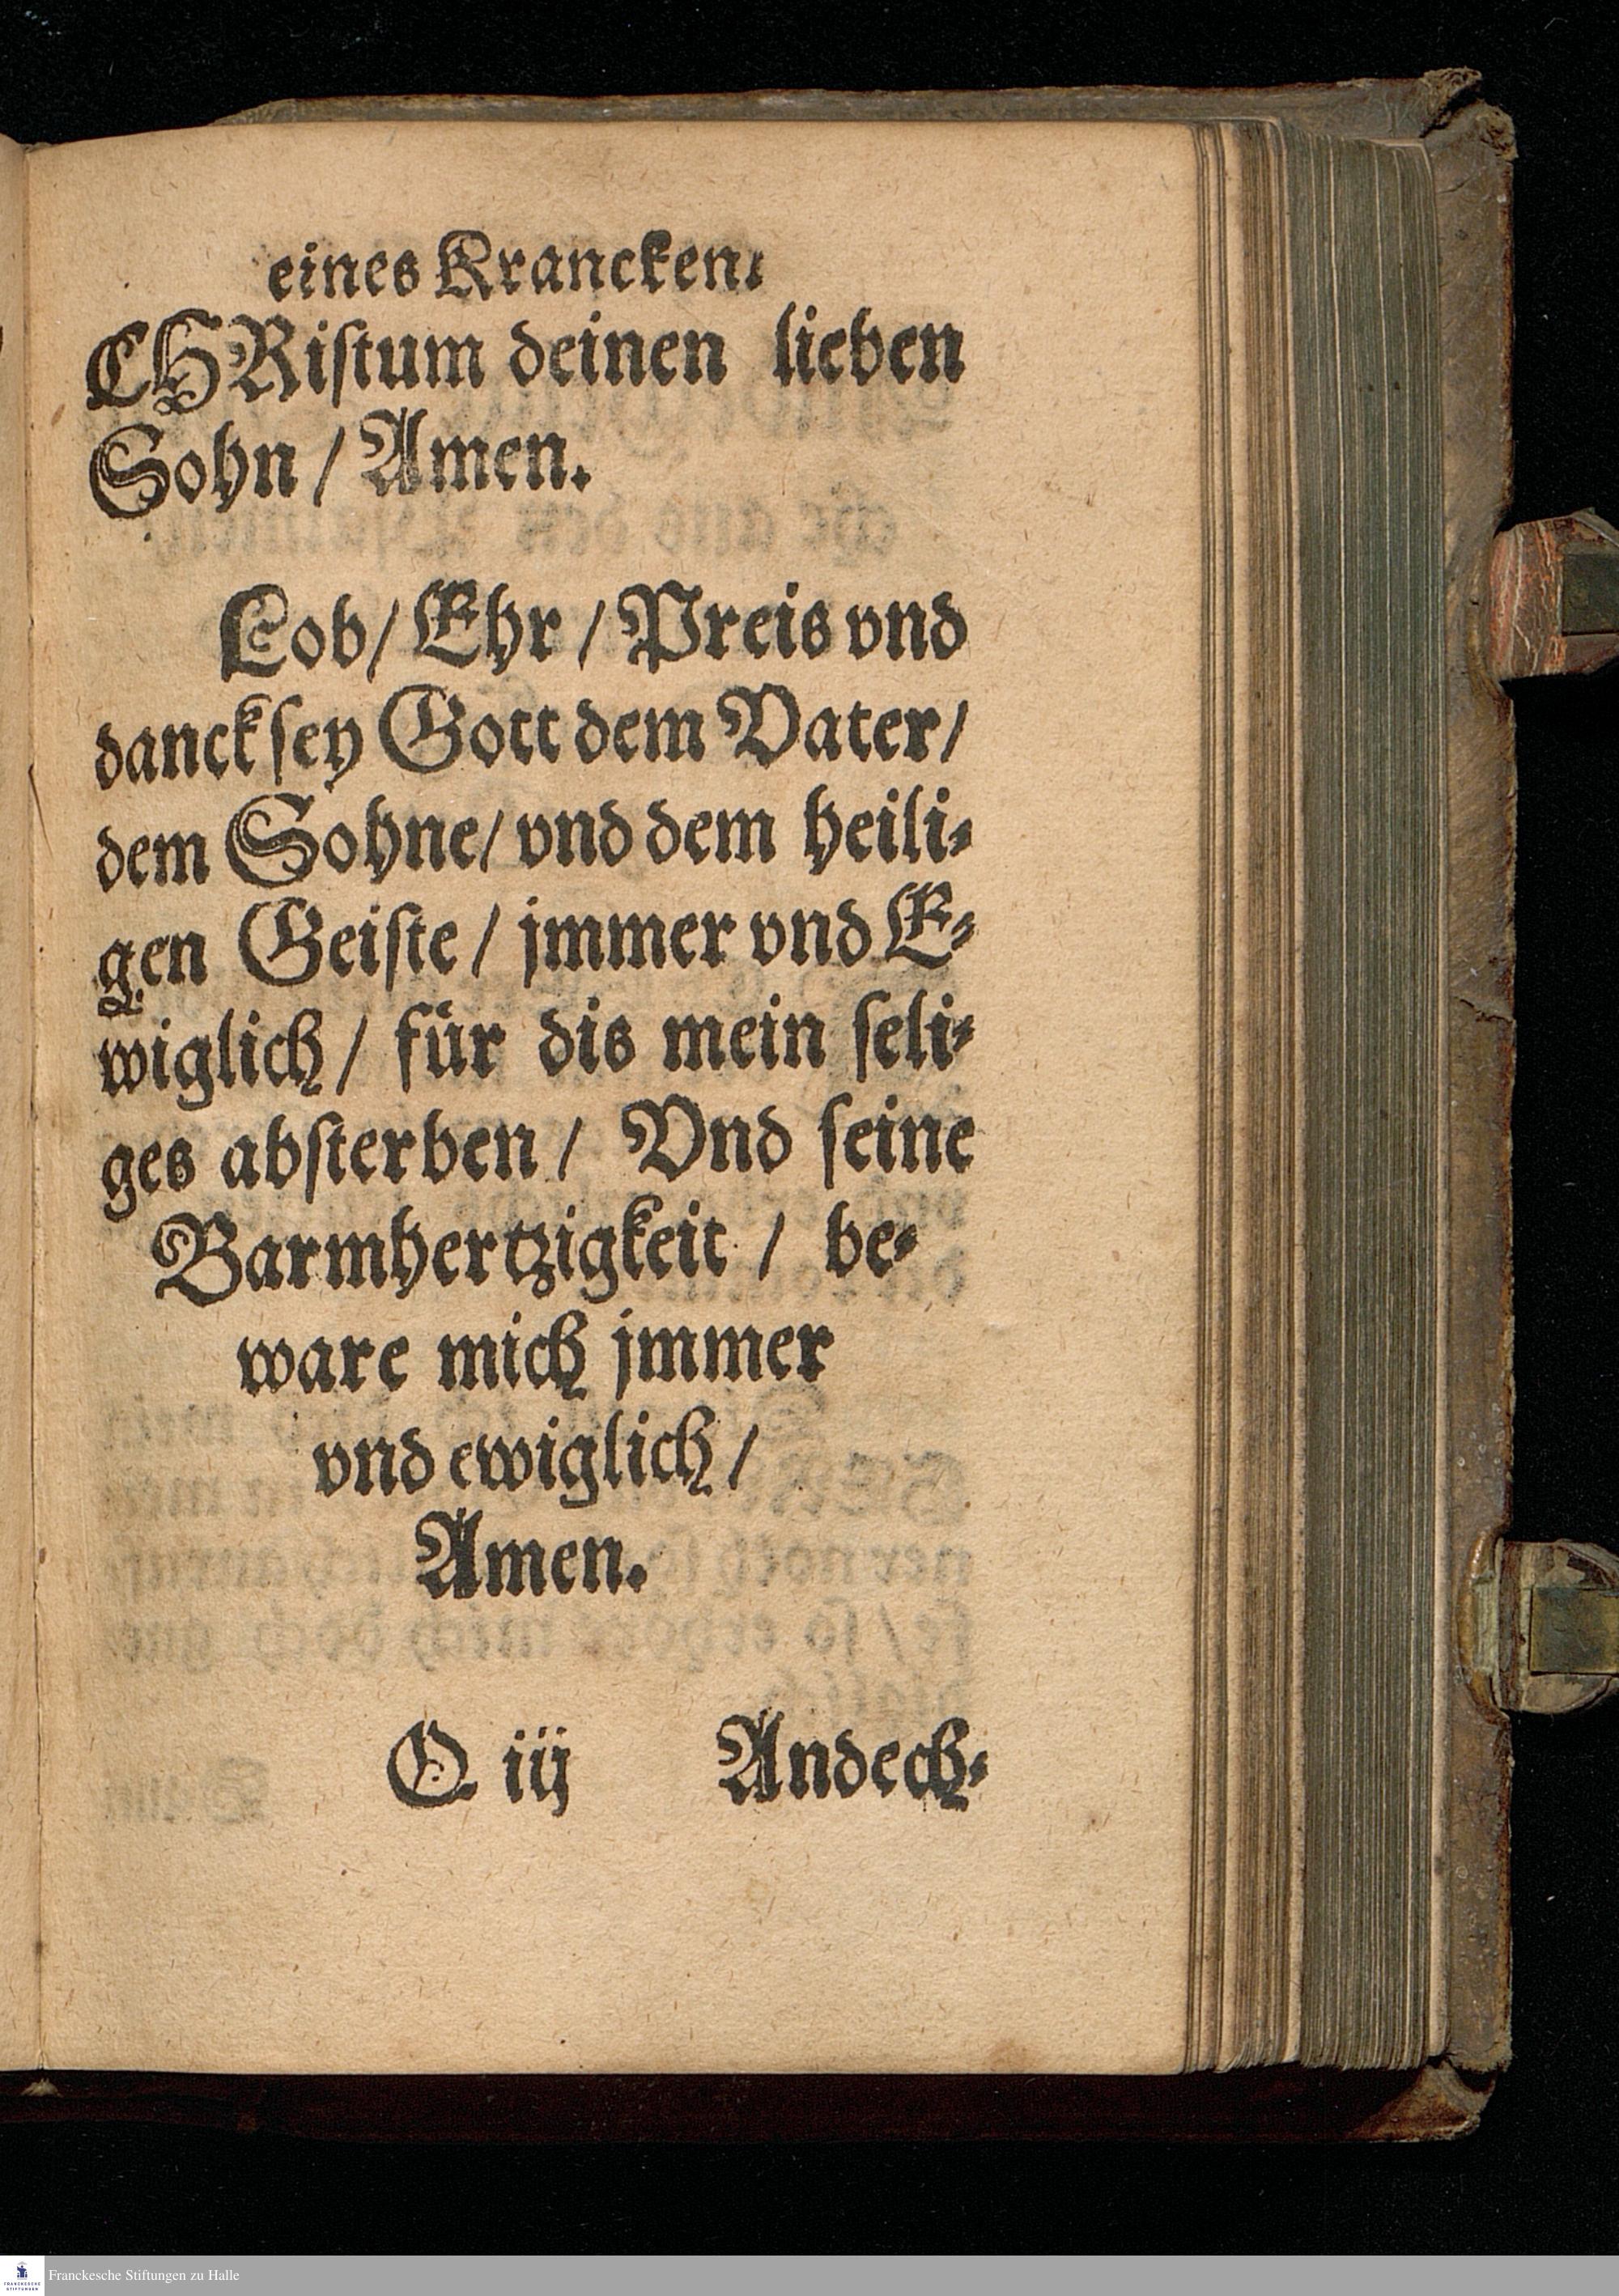 eines Krancken.
CHRiſtum deinen lieben
Sohn / Amen.
Lob / Ehr / Preis vnd
danck ſey Gott dem Vater /
dem Sohne / vnd dem heili⸗
gen Geiſte / jmmer vnd E⸗
wiglich / für dis mein ſeli⸗
ges abſterben / Vnd ſeine
Barmhertzigkeit / be⸗
ware mich jmmer
vnd ewiglich /
Amen.
O iij Andech⸗
FRANCKESCHE STIFTUNGEN
Franckesche Stiftungen zu Halle